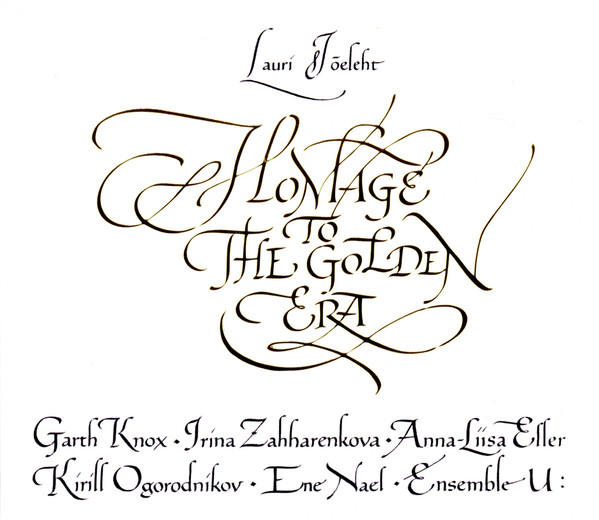 Lauri Jõeleht
HOMAGE
TO
THE GOLDEN
ERA
Garth Knox · Irina Zahharenkova · Anna-Liisa Eller
Kirill Ogorodnikov · Ene Nael · Ensemble U: